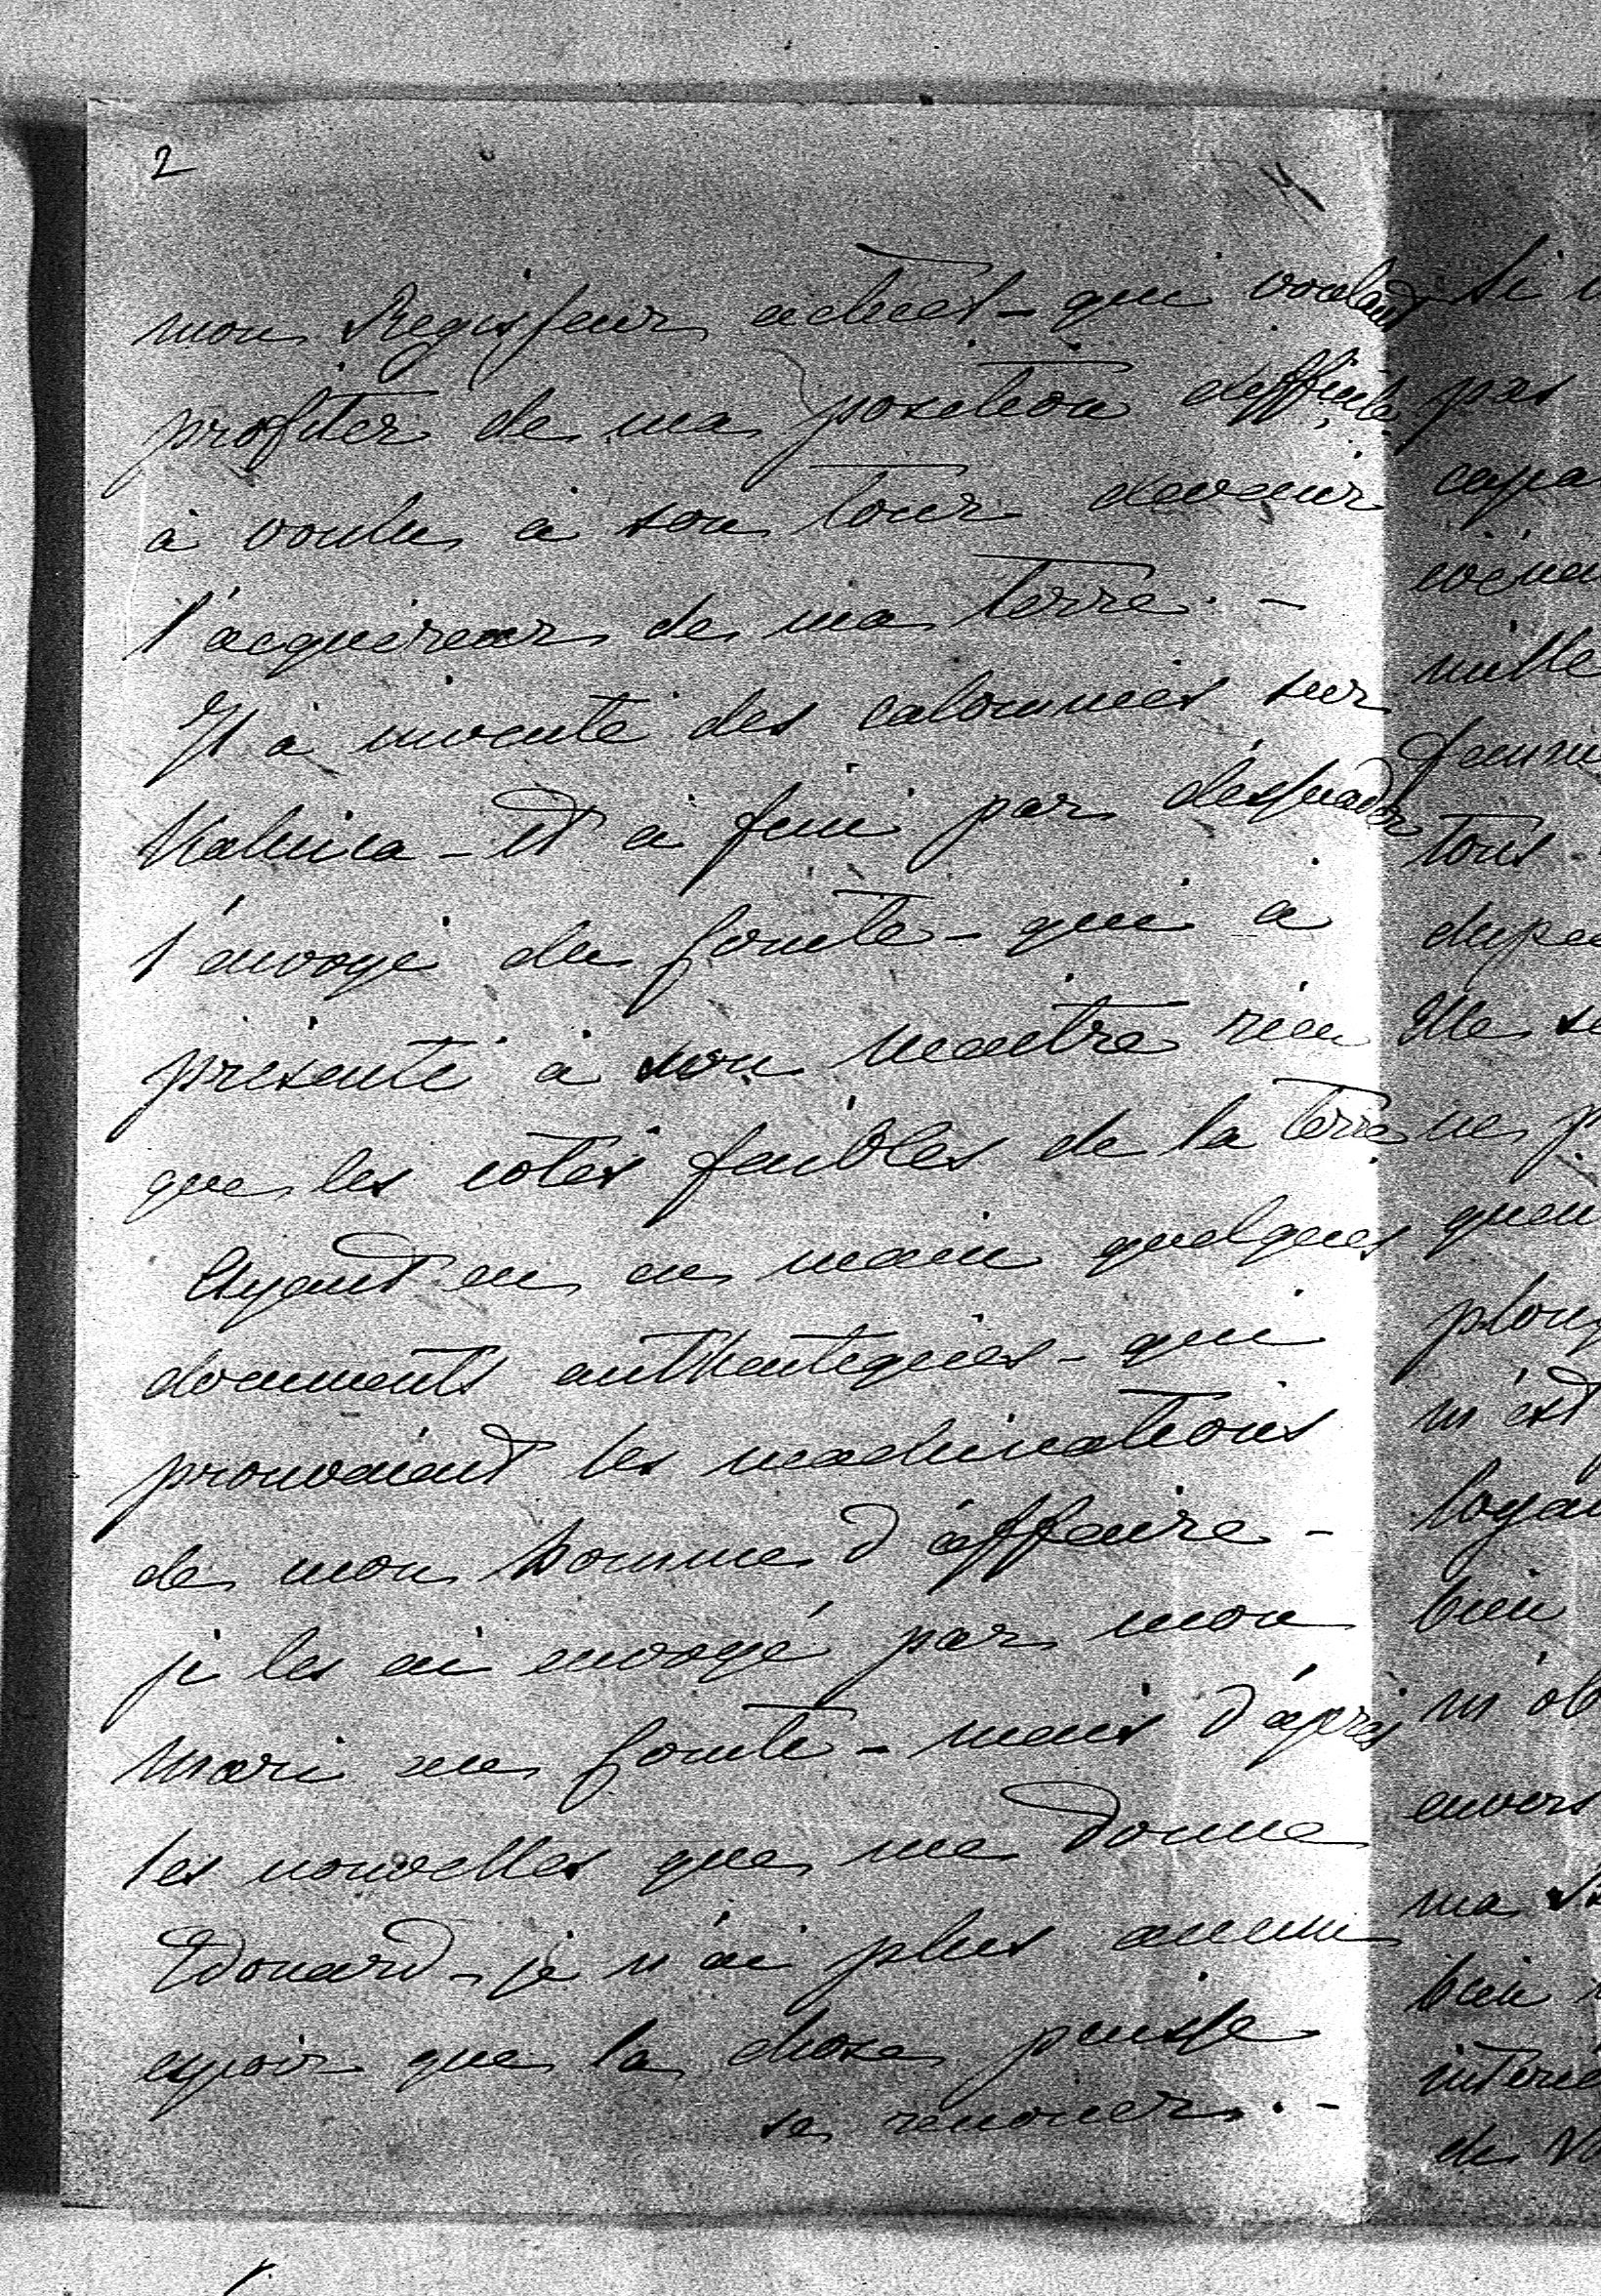 2
mon Regisseur actuel - qui voulant
profiter de ma position difficile
à voulu à son tour devenir
l'acquéreur de ma terre. -
Il à inventé des calomnies sur
Kalnica - et à fini par
l'envoyé du Comte - qui à
présenté à son maitre rien
que les cotés faibles de la terre
Ayant eu en main quelques
documents authentiques - qui
prouvaient les machinations
de mon homme d'affaire -
je les ai envoyé par mon
mari au Comte - mais d'après
les nouvelles que me donne
Edouard - je n'ai plus aucun
espoir que la chose puisse
se renouer. -
Si
pas
mille
tous
Elle
ne
m'est
bien
envers
ma
bien
de